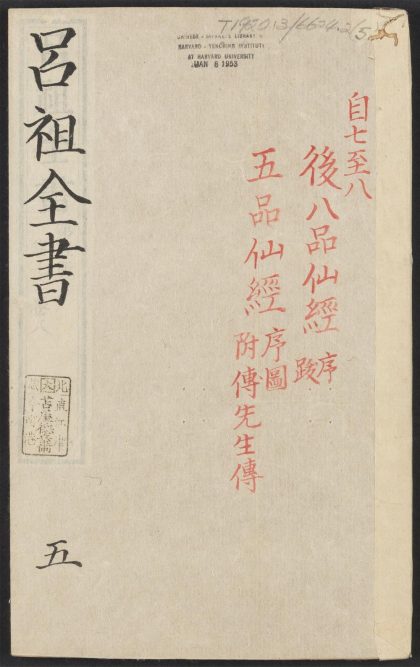 T1920.13/6624.2(5)
HARVARD-YENCHING INSTITUTE
AT HARVARD UNIVERSITY
JAN 8 1953
自七至八
後八品仙經序跋
五品仙經序圖
附傳先生傳
呂祖全書
五